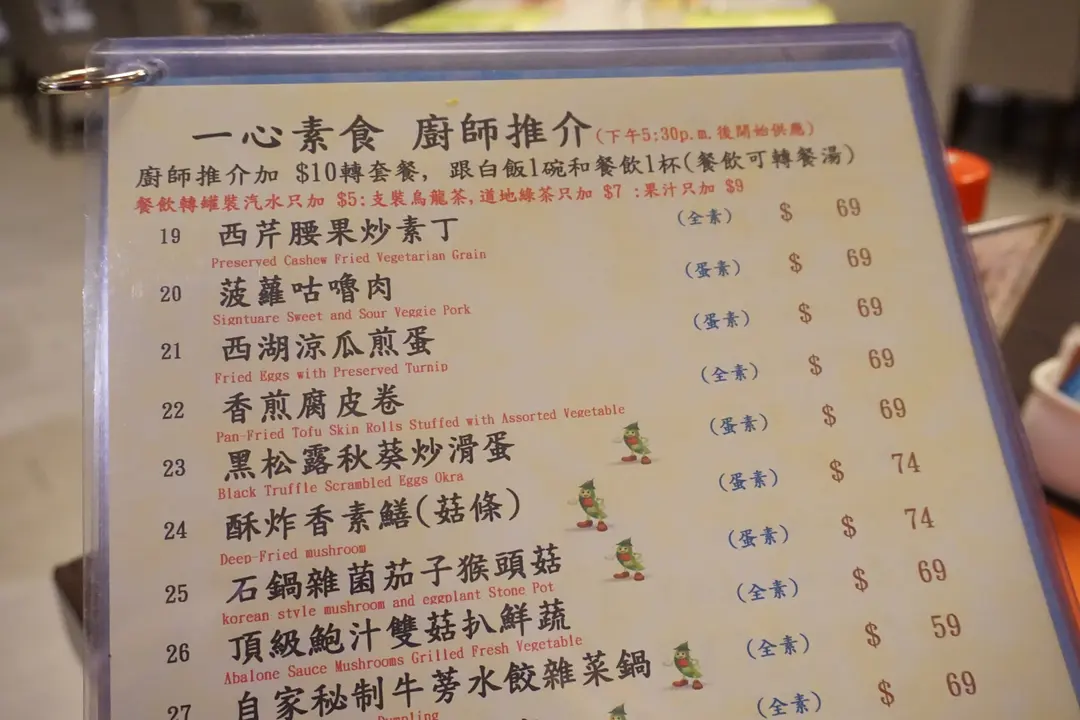 一心素食 廚師推介(下午5:30p.m.後開始供應)
廚師推介加 $10轉套餐, 跟白飯1碗和餐飲1杯(餐飲可轉餐湯)
餐飲轉罐裝汽水只加 $5:支裝烏龍茶,道地綠茶只加 $7 :果汁只加 $9
19 西芹腰果炒素丁 (全素) $ 69
Preserved Cashew Fried Vegetarian Grain
20 菠蘿咕嚕肉 (蛋素) $ 69
Signtuare Sweet and Sour Veggie Pork
21 西湖涼瓜煎蛋 (蛋素) $ 69
Fried Eggs with Preserved Turnip
22 香煎腐皮卷 (全素) $ 69
Pan-Fried Tofu Skin Rolls Stuffed with Assorted Vegetable
23 黑松露秋葵炒滑蛋 (蛋素) $ 69
Black Truffle Scrambled Eggs Okra
24 酥炸香素鱔(菇條) (蛋素) $ 74
Deep-Fried mushroom
25 石鍋雜菌茄子猴頭菇 (蛋素) $ 74
korean style mushroom and eggplant Stone Pot
26 頂級鮑汁雙菇扒鮮蔬 (全素) $ 69
Abalone Sauce Mushrooms Grilled Fresh Vegetable
27 自家秘制牛蒡水餃雜菜鍋 (全素) $ 59
Dumpling
(全素) $ 69